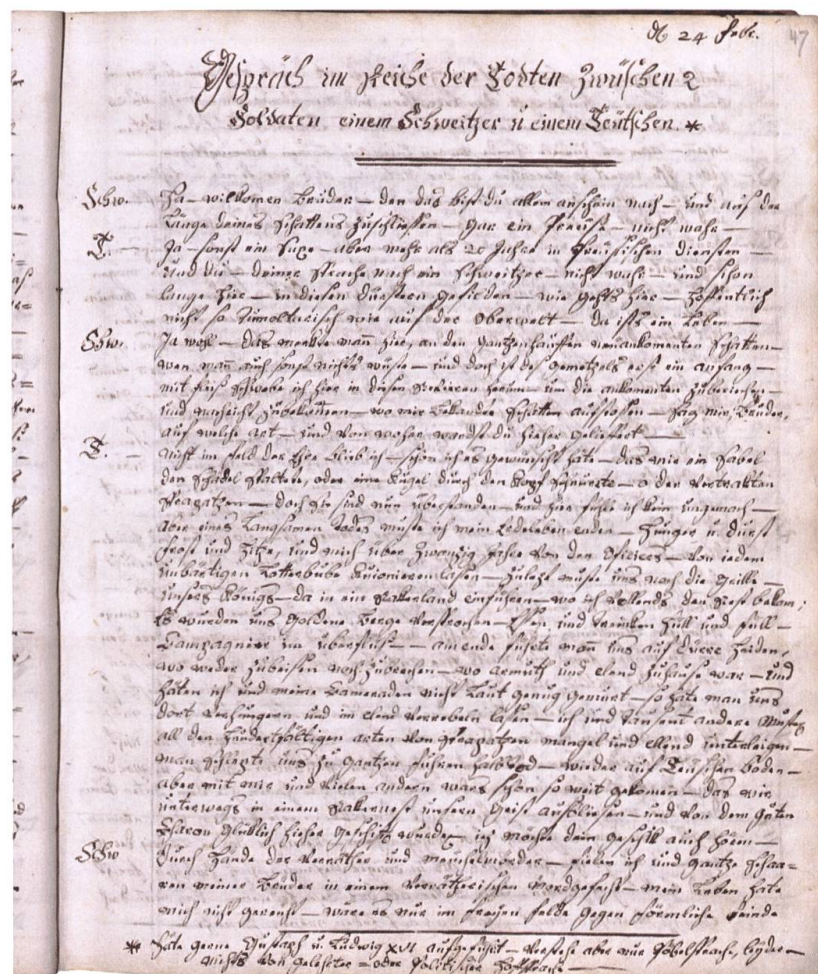 d 24 Febr.
47
Gespräch im Reiche der Todten Zwüschen 2
Soldaten, einem Schweitzer u einem Teütschen. *
Schw. Ha — wilkomen Bruder — den das bist du allem anschein nach — und auf der
Länge deines Schattens zuschliessen — gar ein Preüse — nicht wahr —
T. Ja — sonst ein Saxe — aber mehr als 20 Jahre in Preüsischen diensten —
und du — deiner Sprache nach ein Schweitzer — nicht wahr — und schon
lange hier — in diesen düstern gefilden — wie gehts hier — hoffentlich
nicht so Tumoltarisch wie auf der Oberwelt — da ists ein Leben —
Schw. Ja wohl — das merkte man hier, an den gantzen hauffen neüankomenten Schatten —
wen man auch sonst nichts wüste — und doch ist des gemetzels erst ein anfang —
mit fleis schwebe ich hier in diesen Revieren herum — um die ankomenten
und zubekomen — wo mir bekandte Schatten aufstossen — sag mir, Bruder,
auf welche art — und von woher wardst du hieher geliefert —
T. nicht im feld der Ehre blieb ich — schon ich es gewünscht hate — das mir ein Sabel
den Schädel spaltete, oder eine Kugel durch den Kopf — o der vertrakten
Strapatzen — doch sie sind nun überstanden — und hier fühle ich kein ungemach —
aber eines langsamen Todes muste ich mein Lebeleben enden — Hunger u. durst
frost und hitze, und mich über zwanzig Jahre von den Officiers — von jedem
unbärtigen Lotterbube kuionieren lasen — zuletst muste uns noch die Grille —
unsers Königs — da in ein Rakerland einführen — wo ich vollends den Rest bekam;
Es wurden uns goldene berge versprochen — Essen und trinken Hüll und füll —
Campagnier im überfluss — am ende führte man uns auf dürre Heiden,
wo weder zubeisen noch zubrechen — wo armuth und elend zuhause war — und
häten ich und meine Cameraden nicht laut genug gemurt — so häte man uns
dort verhungern und im elend verrebeln lasen — ich und tausent andere musten
all den hundertfältigen arten von Strapatzen mangel und ellend unterleigen —
man schlepte uns zu gantzen fuhren halb Tod — wieder auf Teütschen boden —
aber mit mir und vielen andern wars schon so weit gekomen — das wir
unterwegs in einem Rakernest unsern Geist aufbliesen — und von dem guten
Charon glüklich hieher geschifft wurden — ich möchte dein geschik auch hören —
Schw durch hände der Verräther und meüchelmörder — fielen ich und gantze Schaa=
ren meiner Brüder in einem Verrätherischen Mordgefecht — mein Leben hate
mich nicht gereüt — wäre es nur im freyen felde gegen förmliche feinde
* häte gerne Gustaph u. Ludwig XVI aufgeführt — verstehe aber nur Pöbelsprache, beyder —
nichts von gelehrter = oder Politischer Hoffsprache —